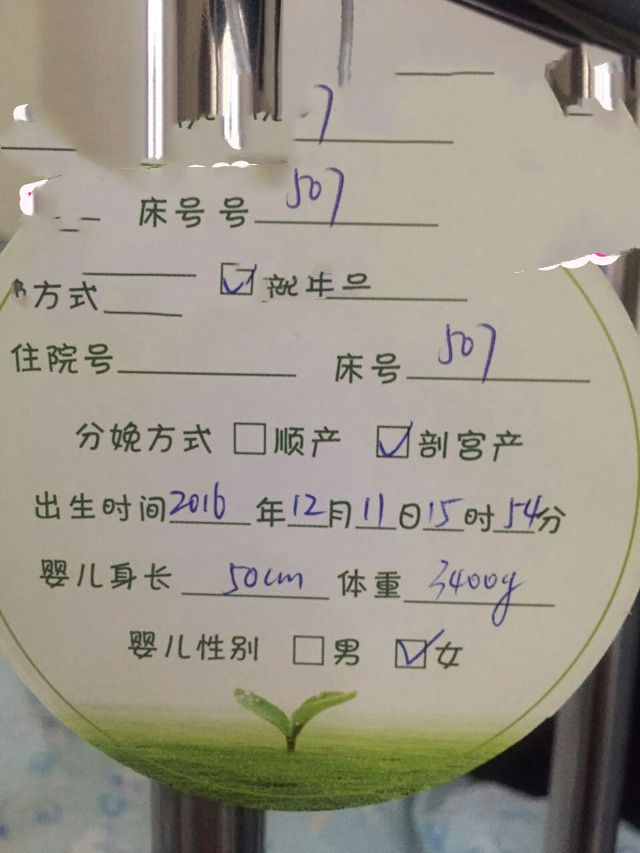 床号号 507
方式
住院号 床号 507
分娩方式 □顺产 ☑剖宫产
出生时间2016年12月11日15时54分
婴儿身长 50cm 体重 3400g
婴儿性别 □男 ☑女